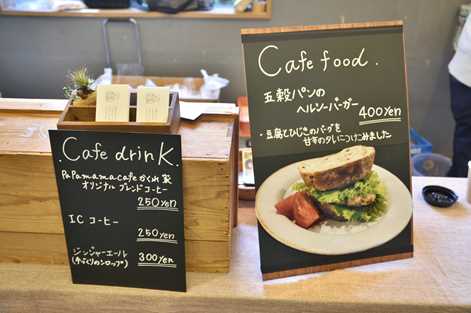 Cafe drink.
PaPamama cafe かくれ家
オリジナル ブレンドコーヒー
250yen
ICコーヒー
250yen
ジンジャーエール
(手づくりシロップ) 300yen
Cafe food.
五穀パンの
ヘルシーバーガー
400yen
・豆腐とひじきのバーグを
甘辛のタレにつけこみました